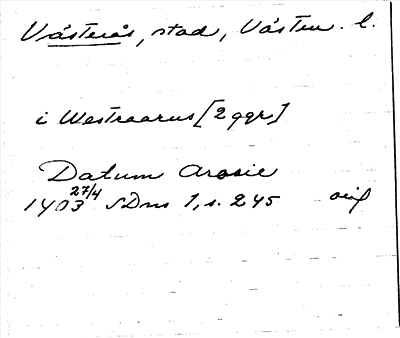 Västerås, stad, Västm. l.
i Westraarus [2 ggr]
Datum Arosie
1403 27/4 SDns 1, s. 245 orig